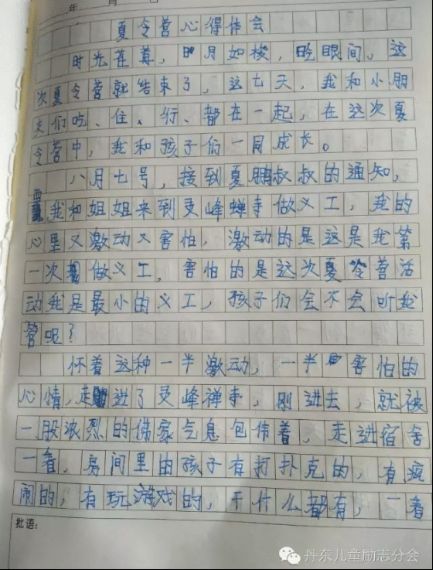 年 月
夏令营心得体会
时光荏苒,日月如梭,眨眼间,这
次夏令营就结束了,这七天,我和小朋
友们吃、住、行、都在一起,在这次夏
令营中,我和孩子们一同成长。
八月七号,接到夏鹏叔叔的通知,
我和姐姐来到灵峰禅寺做义工,我的
心里又激动又害怕,激动的是这是我第
一次做义工,害怕的是这次夏令营活
动我是最小的义工,孩子们会不会听我
管呢?
怀着这种一半激动,一半害怕的
心情,走进了灵峰禅寺,刚进去,就被
一股浓烈的佛家气息包伟着,走进宿舍
一看,房间里的孩子有打扑克的,有疯
闹的,有玩游戏的,干什么都有,一看
批语:
丹东儿童励志分会